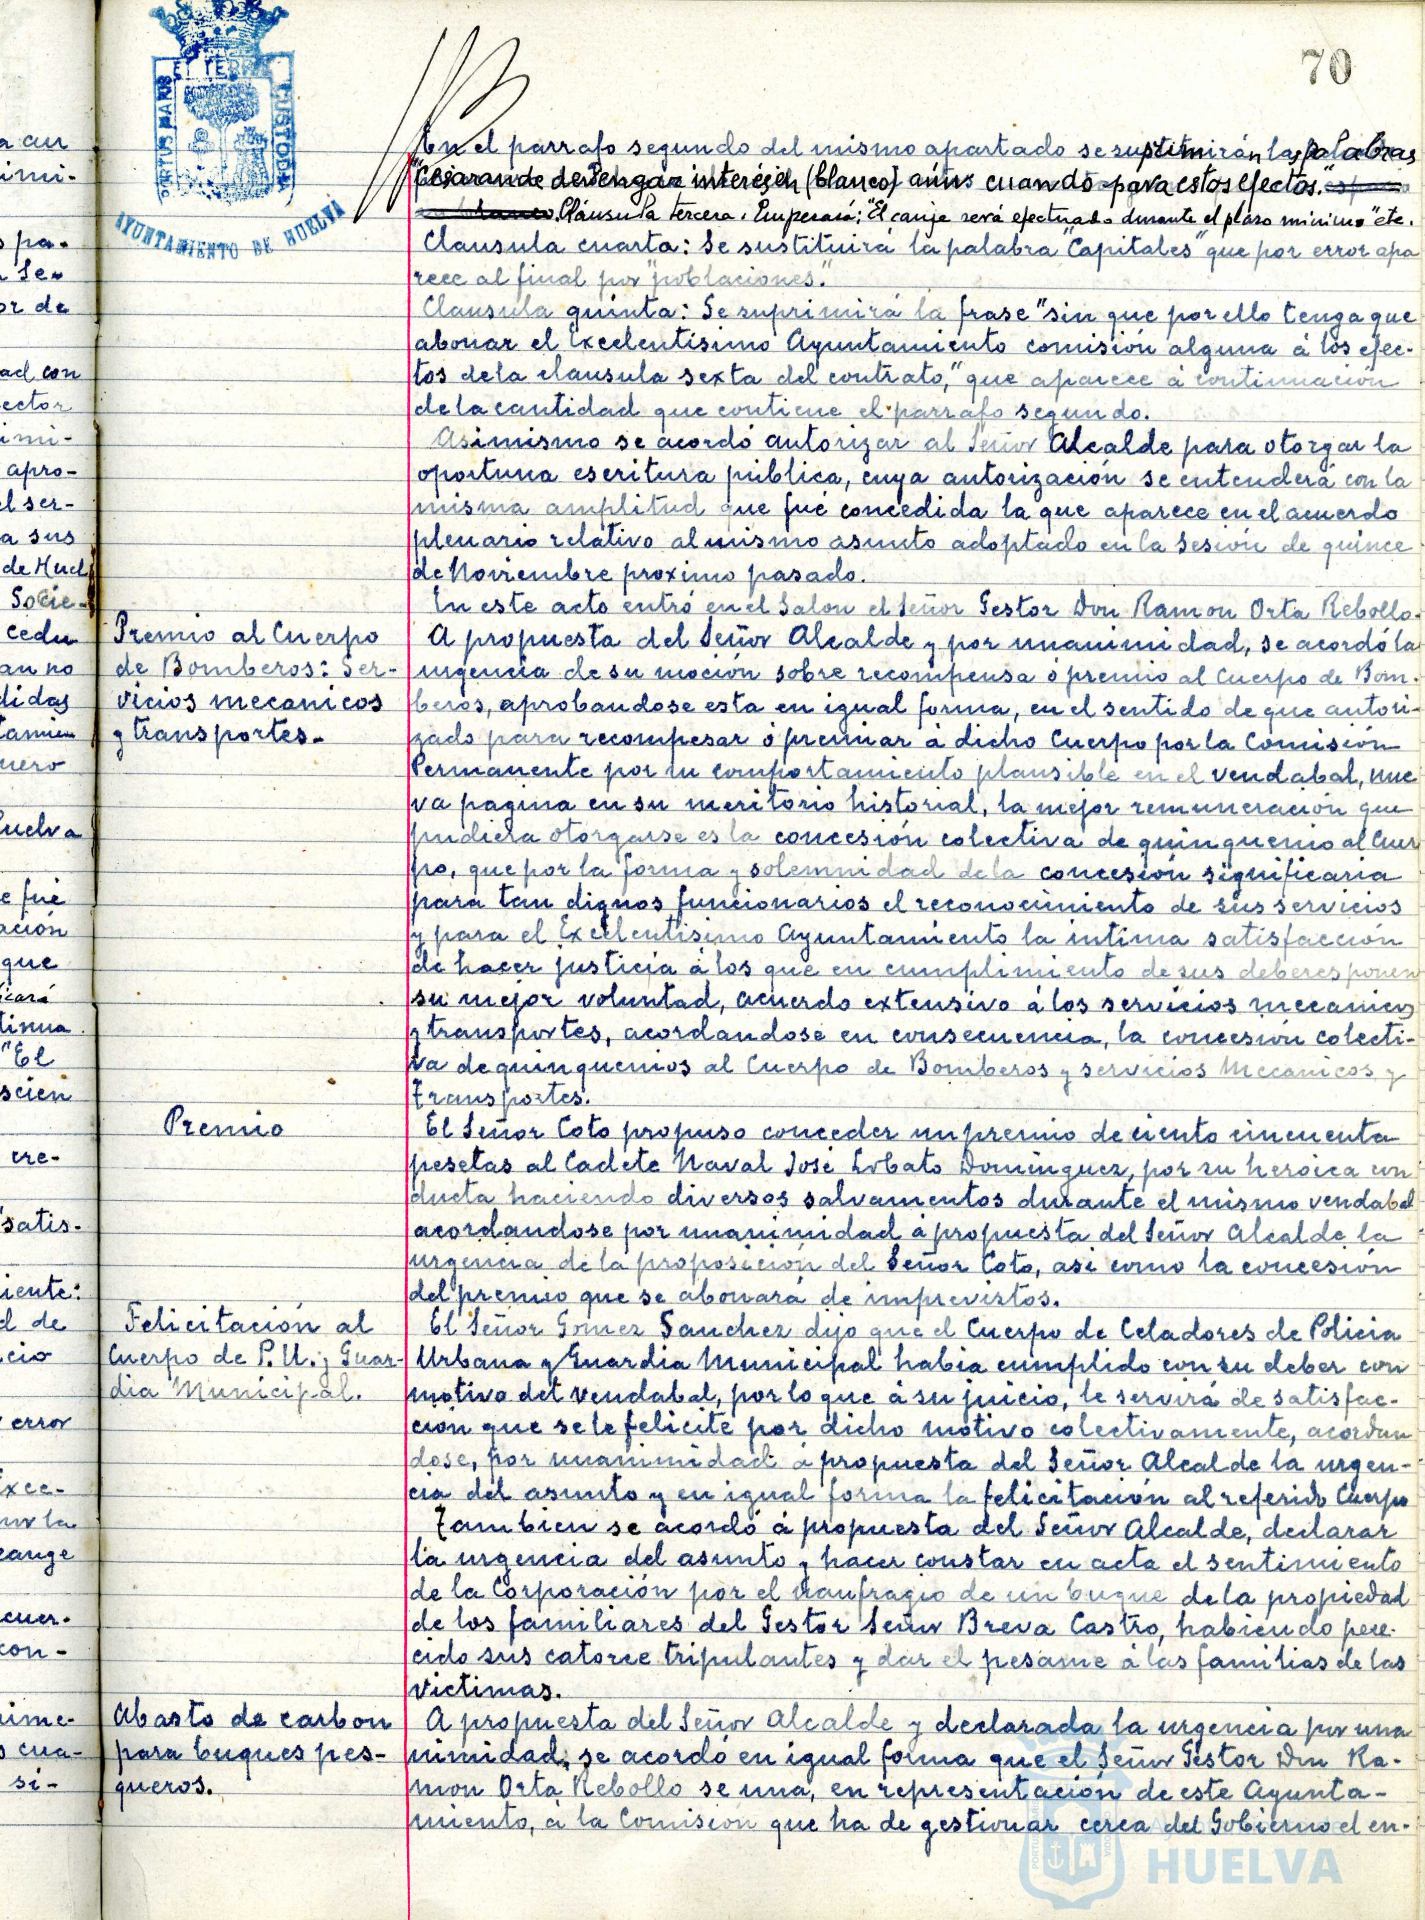 70
PORTUS MARIS
ET TERRAE
CUSTODIA
AYUNTAMIENTO DE HUELVA
En el parrafo segundo del mismo apartado se suprimirán las palabras
devengar interés en (blanco) aún cuando para estos efectos."
Cláusula tercera. Empezará: "El canje será efectuado durante el plazo mínimo" etc.
Clausula cuarta: Se sustituirá la palabra "Capitales" que por error apa
rece al final por "poblaciones."
Clausula quinta: Se suprimirá la frase "sin que por ello tenga que
abonar el Excelentisimo Ayuntamiento comisión alguna á los efec-
tos de la clausula sexta del contrato," que aparece á continuación
de la cantidad que contiene el parrafo segundo.
Asimismo se acordó autorizar al Señor Alcalde para otorgar la
oportuna escritura pública, cuya autorización se entenderá con la
misma amplitud que fué concedida la que aparece en el acuerdo
plenario relativo al mismo asunto adoptado en la Sesión de quince
de Noviembre proximo pasado.
En este acto entró en el Salon el Señor Gestor Don Ramon Orta Rebollo.
Premio al Cuerpo
de Bomberos: Ser-
vicios mecanicos
y transportes.-
A propuesta del Señor Alcalde y por unanimidad, se acordó la
urgencia de su moción sobre recompensa ó premio al Cuerpo de Bom-
beros, aprobandose esta en igual forma, en el sentido de que autori-
zado para recompesar ó premiar á dicho Cuerpo por la Comisión
Permanente por su comportamiento plausible en el vendabal, nue
va pagina en su meritorio historial, la mejor remuneración que
pudiera otorgarse es la concesión colectiva de quinquenio al Cuer
po, que por la forma y solemnidad de la concesión significaria
para tan dignos funcionarios el reconocimiento de sus servicios
y para el Excelentisimo Ayuntamiento la intima satisfacción
de hacer justicia á los que en cumplimiento de sus deberes ponen
su mejor voluntad, acuerdo extensivo á los servicios mecanicos
y transportes, acordandose en consecuencia, la concesión colecti-
va de quinquenios al Cuerpo de Bomberos y servicios Mecanicos y
Transportes.
Premio
El Señor Coto propuso conceder un premio de ciento cincuenta
pesetas al Cadete Naval José Lobato Dominguez, por su heroica con
ducta haciendo diversos salvamentos durante el mismo vendabal
acordandose por unanimidad á propuesta del Señor Alcalde la
urgencia de la proposición del Señor Coto, asi como la concesión
del premio que se abonará de imprevistos.
Felicitación al
Cuerpo de P.U. y Guar-
dia Municipal.
El Señor Gomez Sanchez dijo que el Cuerpo de Celadores de Policia
Urbana y Guardia Municipal habia cumplido con su deber con
motivo del vendabal, por lo que á su juicio, le servirá de satisfac-
ción que se le felicite por dicho motivo colectivamente, acordan
dose, por unanimidad á propuesta del Señor Alcalde la urgen-
cia del asunto y en igual forma la felicitación al referido Cuerpo
Tambien se acordó á propuesta del Señor Alcalde, declarar
la urgencia del asunto y hacer constar en acta el sentimiento
de la Corporación por el naufragio de un buque de la propiedad
de los familiares del Gestor Señor Breva Castro, habiendo pere-
cido sus catorce tripulantes y dar el pesame á las familias de las
victimas.
Abasto de carbon
para buques pes-
queros.
A propuesta del Señor Alcalde y declarada la urgencia por una
nimidad, se acordó en igual forma que el Señor Gestor Don Ra-
mon Orta Rebollo se una, en representación de este Ayunta-
miento, á la Comisión que ha de gestionar cerca del Gobierno el en-
HUELVA